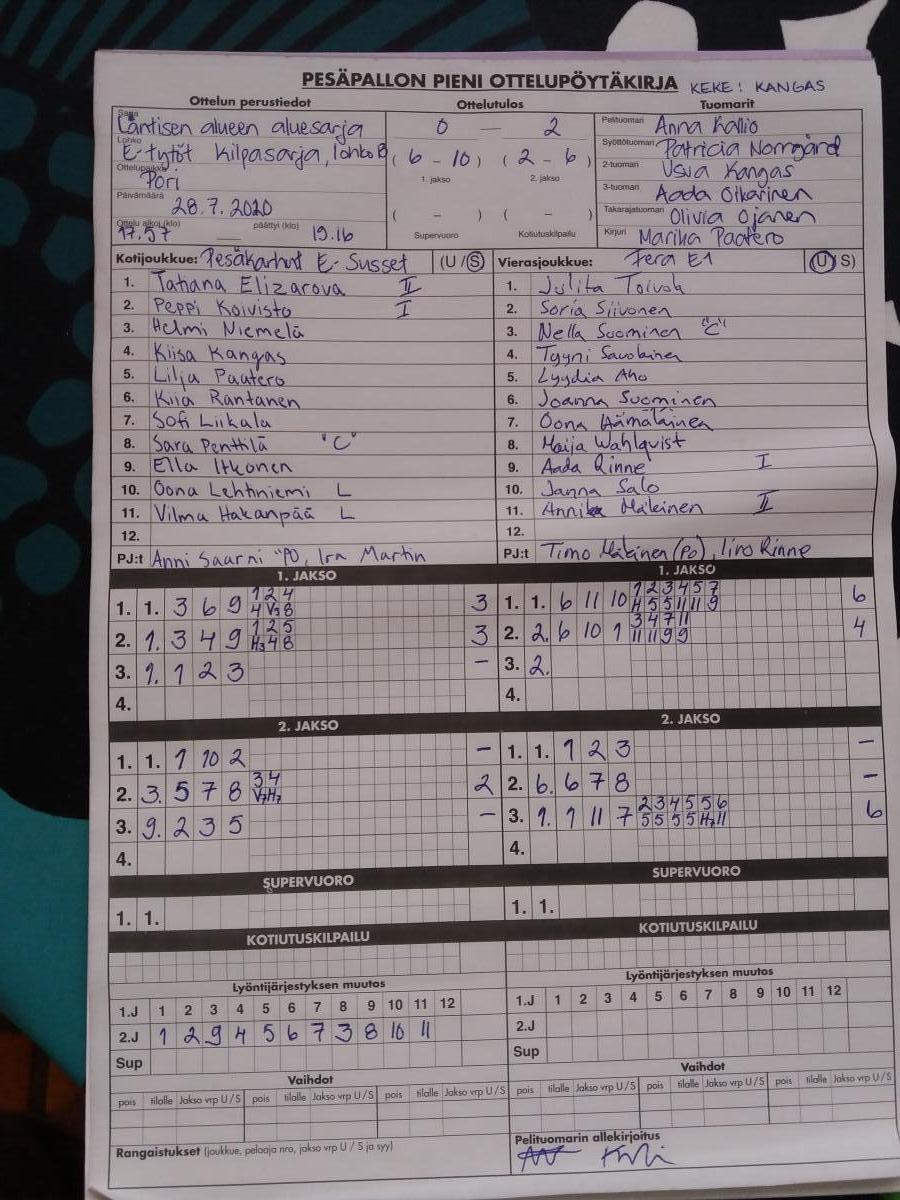 PESÄPALLON PIENI OTTELUPÖYTÄKIRJA KEKE: KANGAS
Ottelun perustiedot Ottelutulos Tuomarit
Sarja Läntisen alueen aluesarja 0 — 2 Pelituomari Anna Kallio
Lohko E-tytöt Kilpasarja, lohko B (6 - 10) (2 - 6) Syöttötuomari Patricia Norrgård
Ottelupaikka Pori 1. jakso 2. jakso 2-tuomari Usva Kangas
Päivämäärä 28.7.2020 ( - ) ( - ) 3-tuomari Aada Oikarinen
Takarajatuomari Olivia Ojanen
Ottelu alkoi (klo) 17.57 — päättyi (klo) 19.16 Supervuoro Kotiutuskilpailu Kirjuri Marika Paatero
Kotijoukkue: Pesäkarhut E-Susset (U / S) Vierasjoukkue: Fera E1 (U / S)
1. Tatiana Elizarova II 1. Julita Toivola
2. Peppi Koivisto I 2. Soria Siivonen
3. Helmi Niemelä 3. Nella Suominen "C"
4. Kiisa Kangas 4. Tyyni Savolainen
5. Lilja Paatero 5. Lyydia Aho
6. Kiia Rantanen 6. Joanna Suominen
7. Sofi Liikala 7. Oona Hämäläinen
8. Sara Penttilä "C" 8. Maija Wahlqvist
9. Ella Itkonen 9. Aada Rinne I
10. Oona Lehtiniemi L 10. Janna Salo
11. Vilma Hakanpää L 11. Annika Mäkinen II
12. 12.
PJ:t Anni Saarni "PO, Ira Martin PJ:t Timo Mäkinen (PO), Iiro Rinne
1. JAKSO 1. JAKSO
1. 1. 3 6 9 1 2 4 3 1. 1. 6 11 10 1 2 3 4 5 7 6
4 V3 8 H 5 5 11 11 9
2. 1. 3 4 9 1 2 5 3 2. 2. 6 10 1 3 4 7 11 4
H3 4 8 11 11 9 9
3. 1. 1 2 3 – 3. 2.
4. 4.
2. JAKSO 2. JAKSO
1. 1. 1 10 2 – 1. 1. 1 2 3 –
2. 3. 5 7 8 3 4 2 2. 6. 6 7 8 –
V7 H7
3. 9. 2 3 5 – 3. 1. 1 11 7 2 3 4 5 5 6 6
5 5 5 5 H7 11
4. 4.
SUPERVUORO SUPERVUORO
1. 1. 1. 1.
KOTIUTUSKILPAILU KOTIUTUSKILPAILU
Lyöntijärjestyksen muutos Lyöntijärjestyksen muutos
1.J 1 2 3 4 5 6 7 8 9 10 11 12 1.J 1 2 3 4 5 6 7 8 9 10 11 12
2.J 1 2 9 4 5 6 7 3 8 10 11 2.J
Sup Sup
Vaihdot Vaihdot
pois tilalle Jakso vrp U / S pois tilalle Jakso vrp U / S pois tilalle Jakso vrp U / S pois tilalle Jakso vrp U / S pois tilalle Jakso vrp U / S pois tilalle Jakso vrp U / S
Rangaistukset (joukkue, pelaaja nro, jakso vrp U / S ja syy) Pelituomarin allekirjoitus